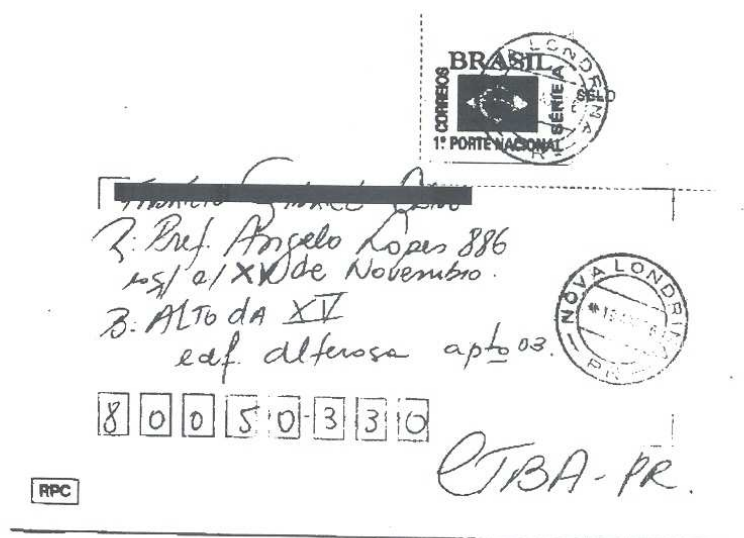 BRASIL
CORREIOS
SÉRIE A
SELO
1º PORTE NACIONAL
LONDRINA
R: Pref. Angelo Lopes 886
esq/ c/ XV de Novembro.
B: ALTO dA XV
edf. alferosa apto 03.
NOVA LONDRINA
PR
80050-330
CTBA-PR.
RPC